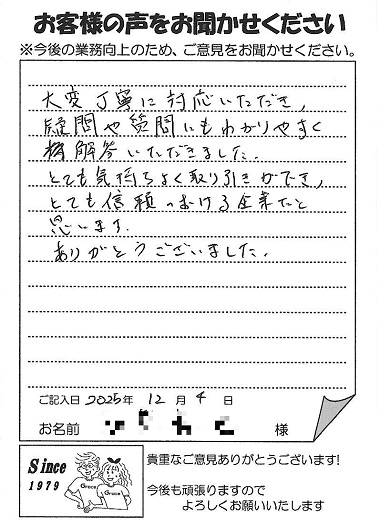 お客様の声をお聞かせください
※今後の業務向上のため、ご意見をお聞かせください。
大変丁寧に対応いただき、
疑問や質問にもわかりやすく
解答いただきました。
とても気持ちよく取り引きができ、
とても信頼のおける企業だと
思います。
ありがとうございました。
ご記入日 2025年 12月 4日
お名前 様
Since
1979
Grace
Grace
貴重なご意見ありがとうございます!
今後も頑張りますので
よろしくお願いいたします